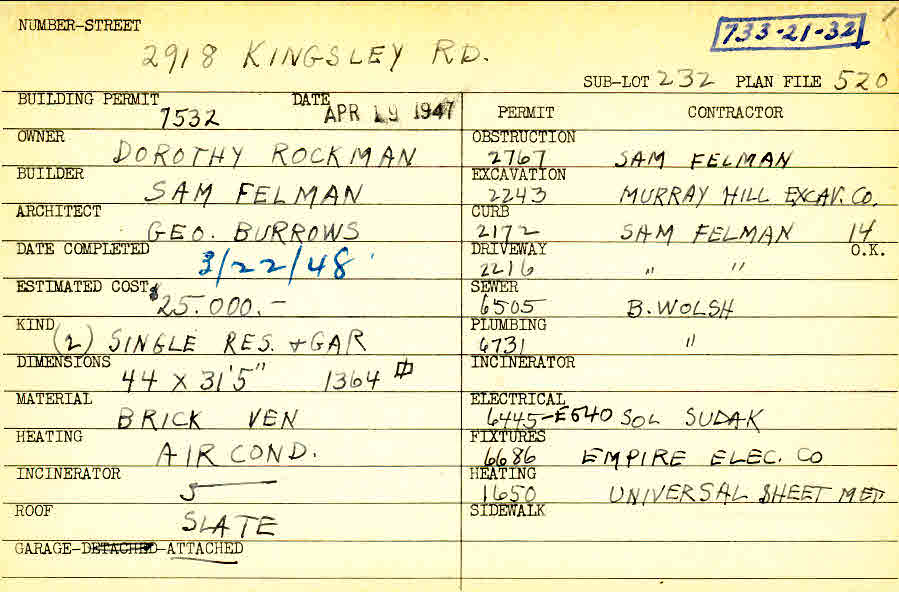 NUMBER-STREET
733-21-32
2918 KINGSLEY RD.
SUB-LOT 232 PLAN FILE 520
BUILDING PERMIT 7532 DATE APR 19 1947
OWNER DOROTHY ROCKMAN
BUILDER SAM FELMAN
ARCHITECT GEO. BURROWS
DATE COMPLETED 3/22/48
ESTIMATED COST $25.000.-
KIND (2) SINGLE RES. + GAR
DIMENSIONS 44 X 31'5" 1364
MATERIAL BRICK VEN
HEATING AIR COND.
INCINERATOR
ROOF SLATE
GARAGE-DETACHED-ATTACHED
PERMIT CONTRACTOR
OBSTRUCTION 2767 SAM FELMAN
EXCAVATION 2243 MURRAY HILL EXCAV. CO.
CURB 2172 SAM FELMAN 14
DRIVEWAY 2216 " " O.K.
SEWER 6505 B. WOLSH
PLUMBING 6731 "
INCINERATOR
ELECTRICAL 6445-E640 SOL SUDAK
FIXTURES 6686 EMPIRE ELEC. CO
HEATING 1650 UNIVERSAL SHEET MET
SIDEWALK